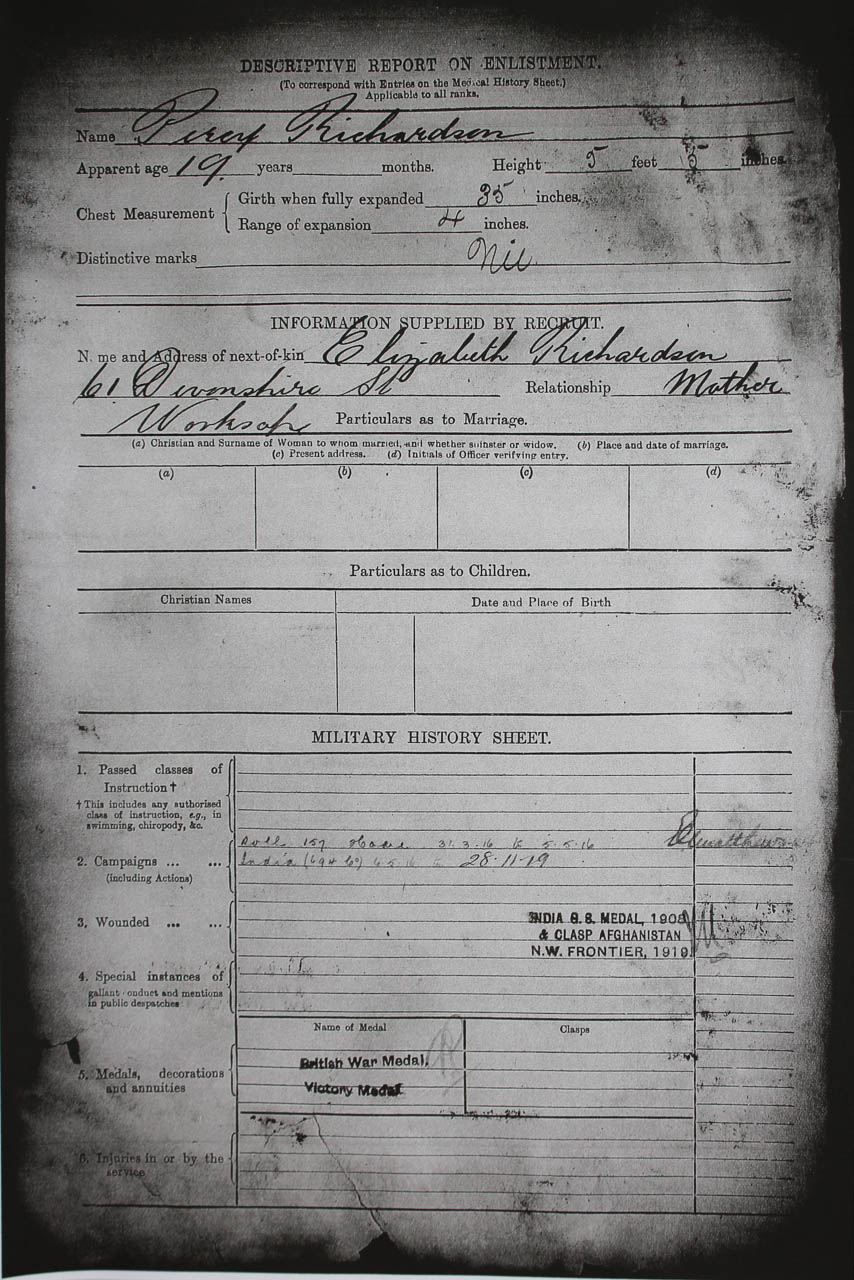 DESCRIPTIVE REPORT ON ENLISTMENT.
(To correspond with Entries on the Medical History Sheet.)
Applicable to all ranks.
Name Percy Richardson
Apparent age 19 years months. Height 5 feet 5 inches.
Chest Measurement { Girth when fully expanded 35 inches.
Range of expansion 4 inches.
Distinctive marks Nil.
INFORMATION SUPPLIED BY RECRUIT.
N. me and Address of next-of-kin Elizabeth Richardson
61 Devonshire St Relationship Mother
Worksop Particulars as to Marriage.
(a) Christian and Surname of Woman to whom married, and whether spinster or widow. (b) Place and date of marriage.
(c) Present address. (d) Initials of Officer verifying entry.
(a) (b) (c) (d)
Particulars as to Children.
Christian Names Date and Place of Birth
MILITARY HISTORY SHEET.
1. Passed classes of
Instruction †
† This includes any authorised
class of instruction, e.g., in
swimming, chiropody, &c.
Home 31.3.16 to 5.5.16
2. Campaigns ... ... India 6.5.16 to 28.11.19
(including Actions)
INDIA G.S. MEDAL, 1908
3, Wounded ... ... & CLASP AFGHANISTAN
N.W. FRONTIER, 1919.
4. Special instances of
gallant conduct and mentions
in public despatches
Name of Medal Clasps
British War Medal.
5. Medals, decorations
and annuities Victory Medal
6. Injuries in or by the
service